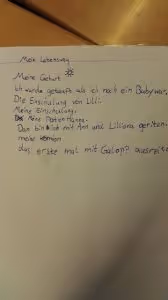 Mein Lebensweg
Meine Geburt
Ich wurde getauft als ich noch ein Baby war.
Die Einschulung von Lilli.
Meine Einschulung.
Meine Paten Hanna.
Dan bin ich mit Ann und Lilliana geriten.
meine
das erste mal mit Galopp ausreite